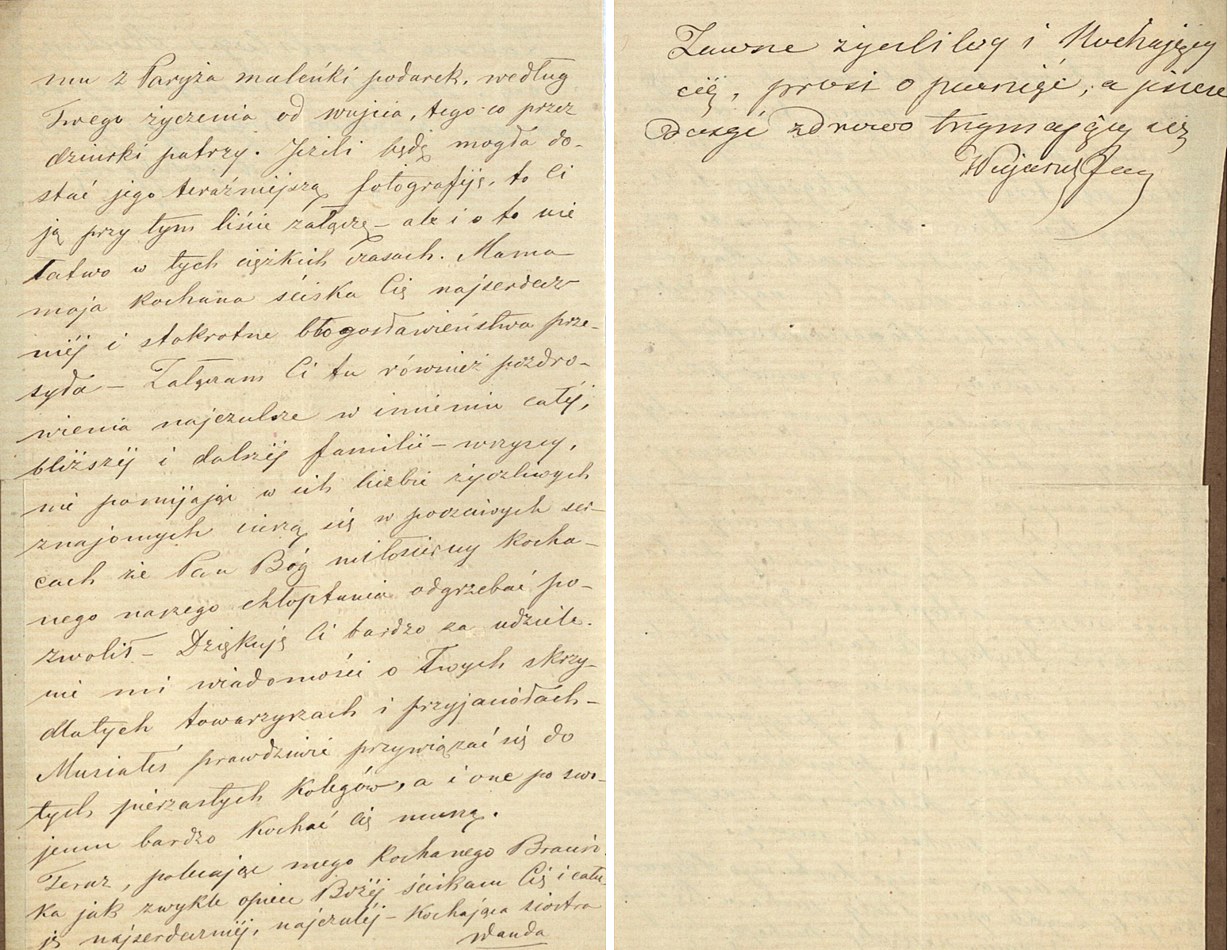 mu z Paryża maleńki podarek, według
Twego życzenia od wujcia, tego co przez
dziurki patrzy. Jeżli będę mogła do-
stać jego teraźniejszą fotografiję, to Ci
ją przy tym liście załączę – ale i o to nie
łatwo w tych ciężkich czasach. Mama
moja kochana ściska Cię najserdecz-
niéj i stokrotne błogosławieństwa prze-
syła – Załączam Ci tu również pozdro-
wienia najczulsze w imieniu całéj,
bliższéj i dalszéj familii – wszyscy,
nie pomijając w ich liczbie życzliwych
znajomych cieszą się w poczciwych ser-
cach że Pan Bóg miłosierny kocha-
nego naszego chłoptania odgrzebać po-
zwolił – Dziękuję Ci bardzo za udziele-
nie mi wiadomości o Twych skrzy-
dlatych towarzyszach i przyjaciołach –
Musiałeś prawdziwie przywiązać się do
tych pierzastych kolegów, a i one po swo-
jemu bardzo kochać Cię muszą.
Teraz, polecając mego kochanego Bracisz-
ka jak zwykle opiece Bożéj ściskam Cię i cału-
ję najserdeczniéj, najczuléj – kochająca siostra
Wanda
Zawsze życzliwy i Kochający
cię, prosi o pamięć, a jeszcze
dosyć zdrowo trzymający się
Wujaszek